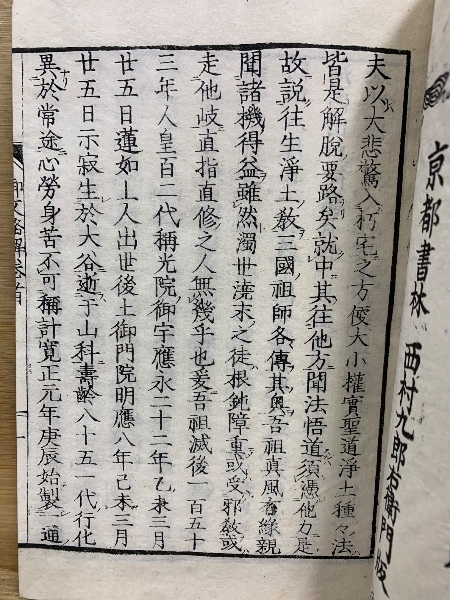 京都書林 西村九郎右衛門版
夫以大悲驚入朽宅之方便大小權實聖道淨土種々法
皆是解脫要路矣就中其往他方聞法悟道須憑他力是
故說往生淨土敎三國祖師各傳其奧吾祖眞風者緣親
聞諸機得益雖然濁世澆末之徒根鈍障重或受邪敎或
走他岐直指直修之人無幾乎也爰吾祖滅後一百五十
三年人皇百二代稱光院御宇應永二十二年乙未三月
廿五日蓮如上人出世後土御門院明應八年己未三月
廿五日示寂生於大谷逝于山科壽齡八十五一代行化
異於常途心勞身苦不可稱計寬正元年庚辰始製一通